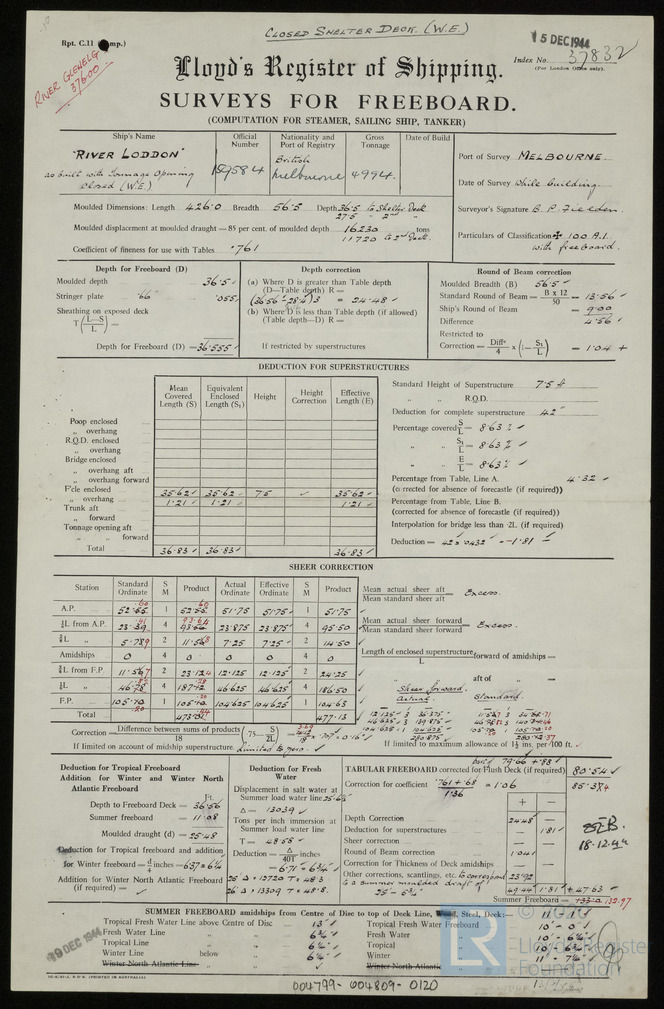 CLOSED SHELTER DECK. (W.E.)
Rpt. C.11
15 DEC 1944
Index No. 37832
(For London Office only).
RIVER GLENELG
37600
Lloyd's Register of Shipping.
SURVEYS FOR FREEBOARD.
(COMPUTATION FOR STEAMER, SAILING SHIP, TANKER)
Ship's Name
Official Number
Nationality and Port of Registry
Gross Tonnage
Date of Build
"RIVER LODDON"
as built with Tonnage Opening
closed (W.E.)
British
Melbourne
4994.
Port of Survey MELBOURNE.
Date of Survey while building
Surveyor's Signature B. P. Fielden.
Particulars of Classification ✠ 100 A.1.
with freeboard.
Moulded Dimensions: Length 426.0 Breadth 56.5 Depth 36.5 to Shelter Deck
27.5 " 2nd "
Moulded displacement at moulded draught = 85 per cent. of moulded depth 16230 tons
11720 to 2nd Deck.
Coefficient of fineness for use with Tables .761
Depth for Freeboard (D)
Moulded depth 36.5
Stringer plate .66" .055
Sheathing on exposed deck
T(L-S/L) =
Depth for Freeboard (D) = 36.555
Depth correction
(a) Where D is greater than Table depth
(D—Table depth) R =
(36.56 - 28.4) 3 = 24.48
(b) Where D is less than Table depth (if allowed)
(Table depth—D) R =
If restricted by superstructures
Round of Beam correction
Moulded Breadth (B) 56.5
Standard Round of Beam = B x 12 / 50 = 13.56
Ship's Round of Beam = 9.00
Difference 4.56
Restricted to
Correction = Diffce / 4 x (1 - S1/L) = 1.04 +
DEDUCTION FOR SUPERSTRUCTURES
Mean Covered Length (S)
Equivalent Enclosed Length (S1)
Height
Height Correction
Effective Length (E)
Poop enclosed
" overhang
R.Q.D. enclosed
" overhang
Bridge enclosed
" overhang aft
" overhang forward
F'cle enclosed 35.62 35.62 7.5 35.62
" overhang 1.21 1.21 1.21
Trunk aft
" forward
Tonnage opening aft
" " forward
Total 36.83 36.83 36.83
Standard Height of Superstructure 7.5 ft
" " R.Q.D.
Deduction for complete superstructure 42"
Percentage covered S/L = 8.63 %
" " S1/L = 8.63 %
" " E/L = 8.63 %
Percentage from Table, Line A. 4.32
(corrected for absence of forecastle (if required))
Percentage from Table, Line B.
(corrected for absence of forecastle (if required))
Interpolation for bridge less than .2L (if required)
Deduction = 42 x .0432 = -1.81
SHEER CORRECTION
Station
Standard Ordinate
S M
Product
Actual Ordinate
Effective Ordinate
S M
Product
A.P. 1 51.75 51.75 1 51.75
⅙L from A.P. 4 23.875 23.875 4 95.50
⅓L " 5.789 2 7.25 7.25 2 14.50
Amidships 0 4 0 0 0 4 0
⅓L from F.P. 2 12.125 12.125 2 24.25
⅙L " 4 46.625 46.625 4 186.50
F.P. 1 104.625 104.625 1 104.63
Total 477.13
Mean actual sheer aft / Mean standard sheer aft = Excess.
Mean actual sheer forward / Mean standard sheer forward = Excess.
Length of enclosed superstructure / L forward of amidships =
" aft of " =
Sheer forward.
Actual Standard.
12.125 3 36.375
46.625 3 139.875
104.625 1 104.625
280.875
Correction = Difference between sums of products / 18 (.75 - S/2L) =
If limited on account of midship superstructure limited to zero.
If limited to maximum allowance of 1½ ins. per 100 ft.
Deduction for Tropical Freeboard
Addition for Winter and Winter North
Atlantic Freeboard
Ft.
Depth to Freeboard Deck = 36.56
Summer freeboard = 11.08
Moulded draught (d) = 25.48
Deduction for Tropical freeboard and addition
for Winter freeboard = d/4 inches = 6.37 = 6¼
Addition for Winter North Atlantic Freeboard
(if required) =
Deduction for Fresh Water
Displacement in salt water at
Summer load water line
Δ = 13039
Tons per inch immersion at
Summer load water line
T = 48.58
Deduction = Δ / 40T inches
= 6.71 = 6¾
25' Δ = 12720 T = 48.3
26' Δ = 13309 T = 48.8
TABULAR FREEBOARD corrected for Flush Deck (if required) 80.54
Correction for coefficient .761 + .68 / 1.36 = 1.06
+ −
Depth Correction 24.48
Deduction for superstructures 1.81
Sheer correction
Round of Beam correction 1.04
Correction for Thickness of Deck amidships
Other corrections, scantlings, etc. to correspond 23.92
to a summer moulded draft of
25'-5¾"
49.44 1.81 + 47.63
Summer Freeboard = 132.97
18.12.44
SUMMER FREEBOARD amidships from Centre of Disc to top of Deck Line, Wood, Steel, Deck:— 11'-1"
Tropical Fresh Water Line above Centre of Disc 13"
Fresh Water Line " " 6¾"
Tropical Line " " 6¼"
Winter Line below " 6¼"
Winter North Atlantic Line " "
Tropical Fresh Water Freeboard 10'-0"
Fresh Water " 10'-6¼"
Tropical " 10'-6¾"
Winter " 11'-7¼"
Winter North Atlantic "
19 DEC 1944
(PRINTED IN AUSTRALIA)
004799-004809-0120
LR
© 2020
Lloyd's Register
Foundation